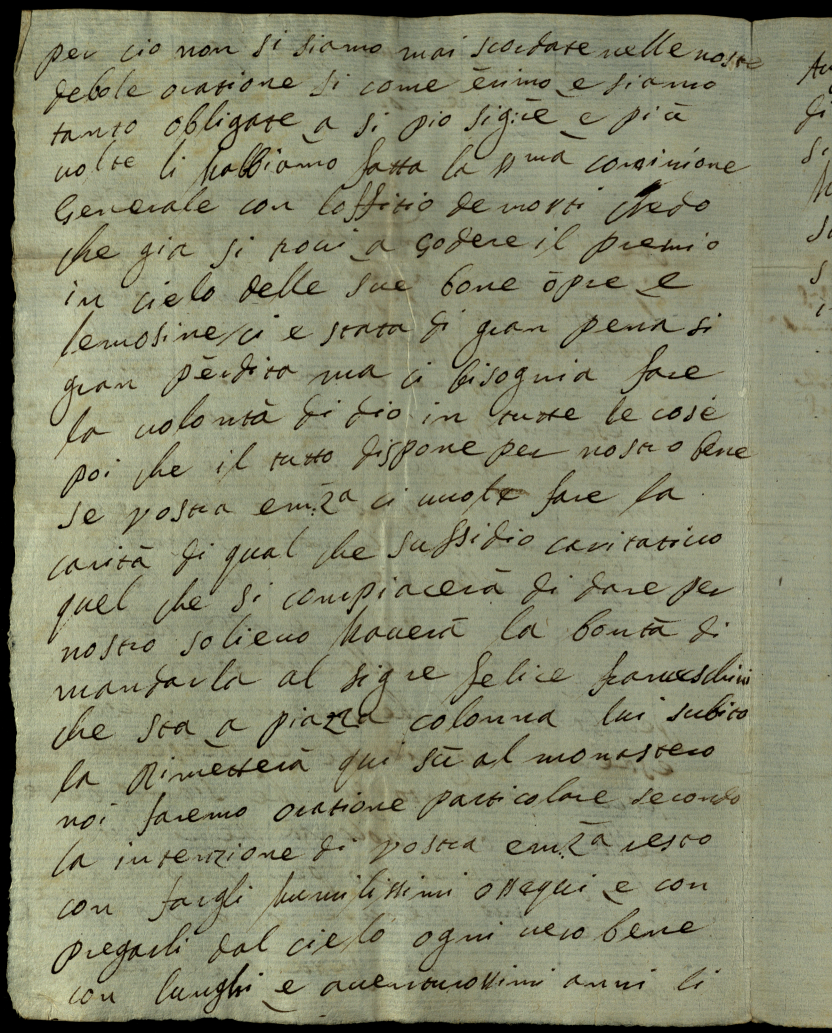 per cio non si siamo mai scordate nelle nostre
debole oratione si come ėrimo e siamo
tanto obligate a si pio sigre e più
volte li habbiamo fatta la s.ma comunione
Generale con loffitio de morti credo
che gia si trovi a Godere il premio
in cielo delle sue bone opre e
lemosine ci e stata di gran pena si
gran perdita ma ci bisognia fare
la volontà di dio in tutte le cose
poi che il tutto dispone per nostro bene
se vostra em.za ci vuole fare la
carità di qual che sussidio caritativo
quel che si compiacerà di dare per
nostro solievo haverà la bontà di
mandarla al sigre felice franceschini
che sta a piazza colonna lui subito
la Rimetterà qui sù al monastero
noi faremo oratione particolare secondo
la intenzione di vostra em.za resto
con fargli humilissimi ossequi e con
pregarli dal cielo ogni vero bene
con lunghi e aventurossimi anni li